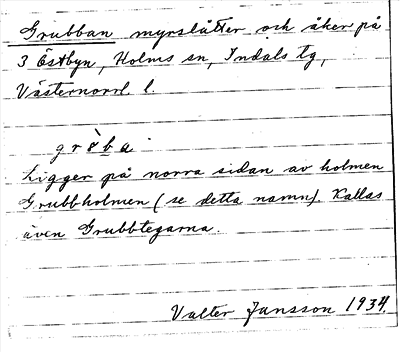 Grubban myrslåtter och åker på
3 Östbyn, Holms sn, Indals tg,
Västernorrl. l.
gròba
Ligger på norra sidan av holmen
Grubbholmen (se detta namn). Kallas
även Grubbtegarna.
Valter Jansson 1934.